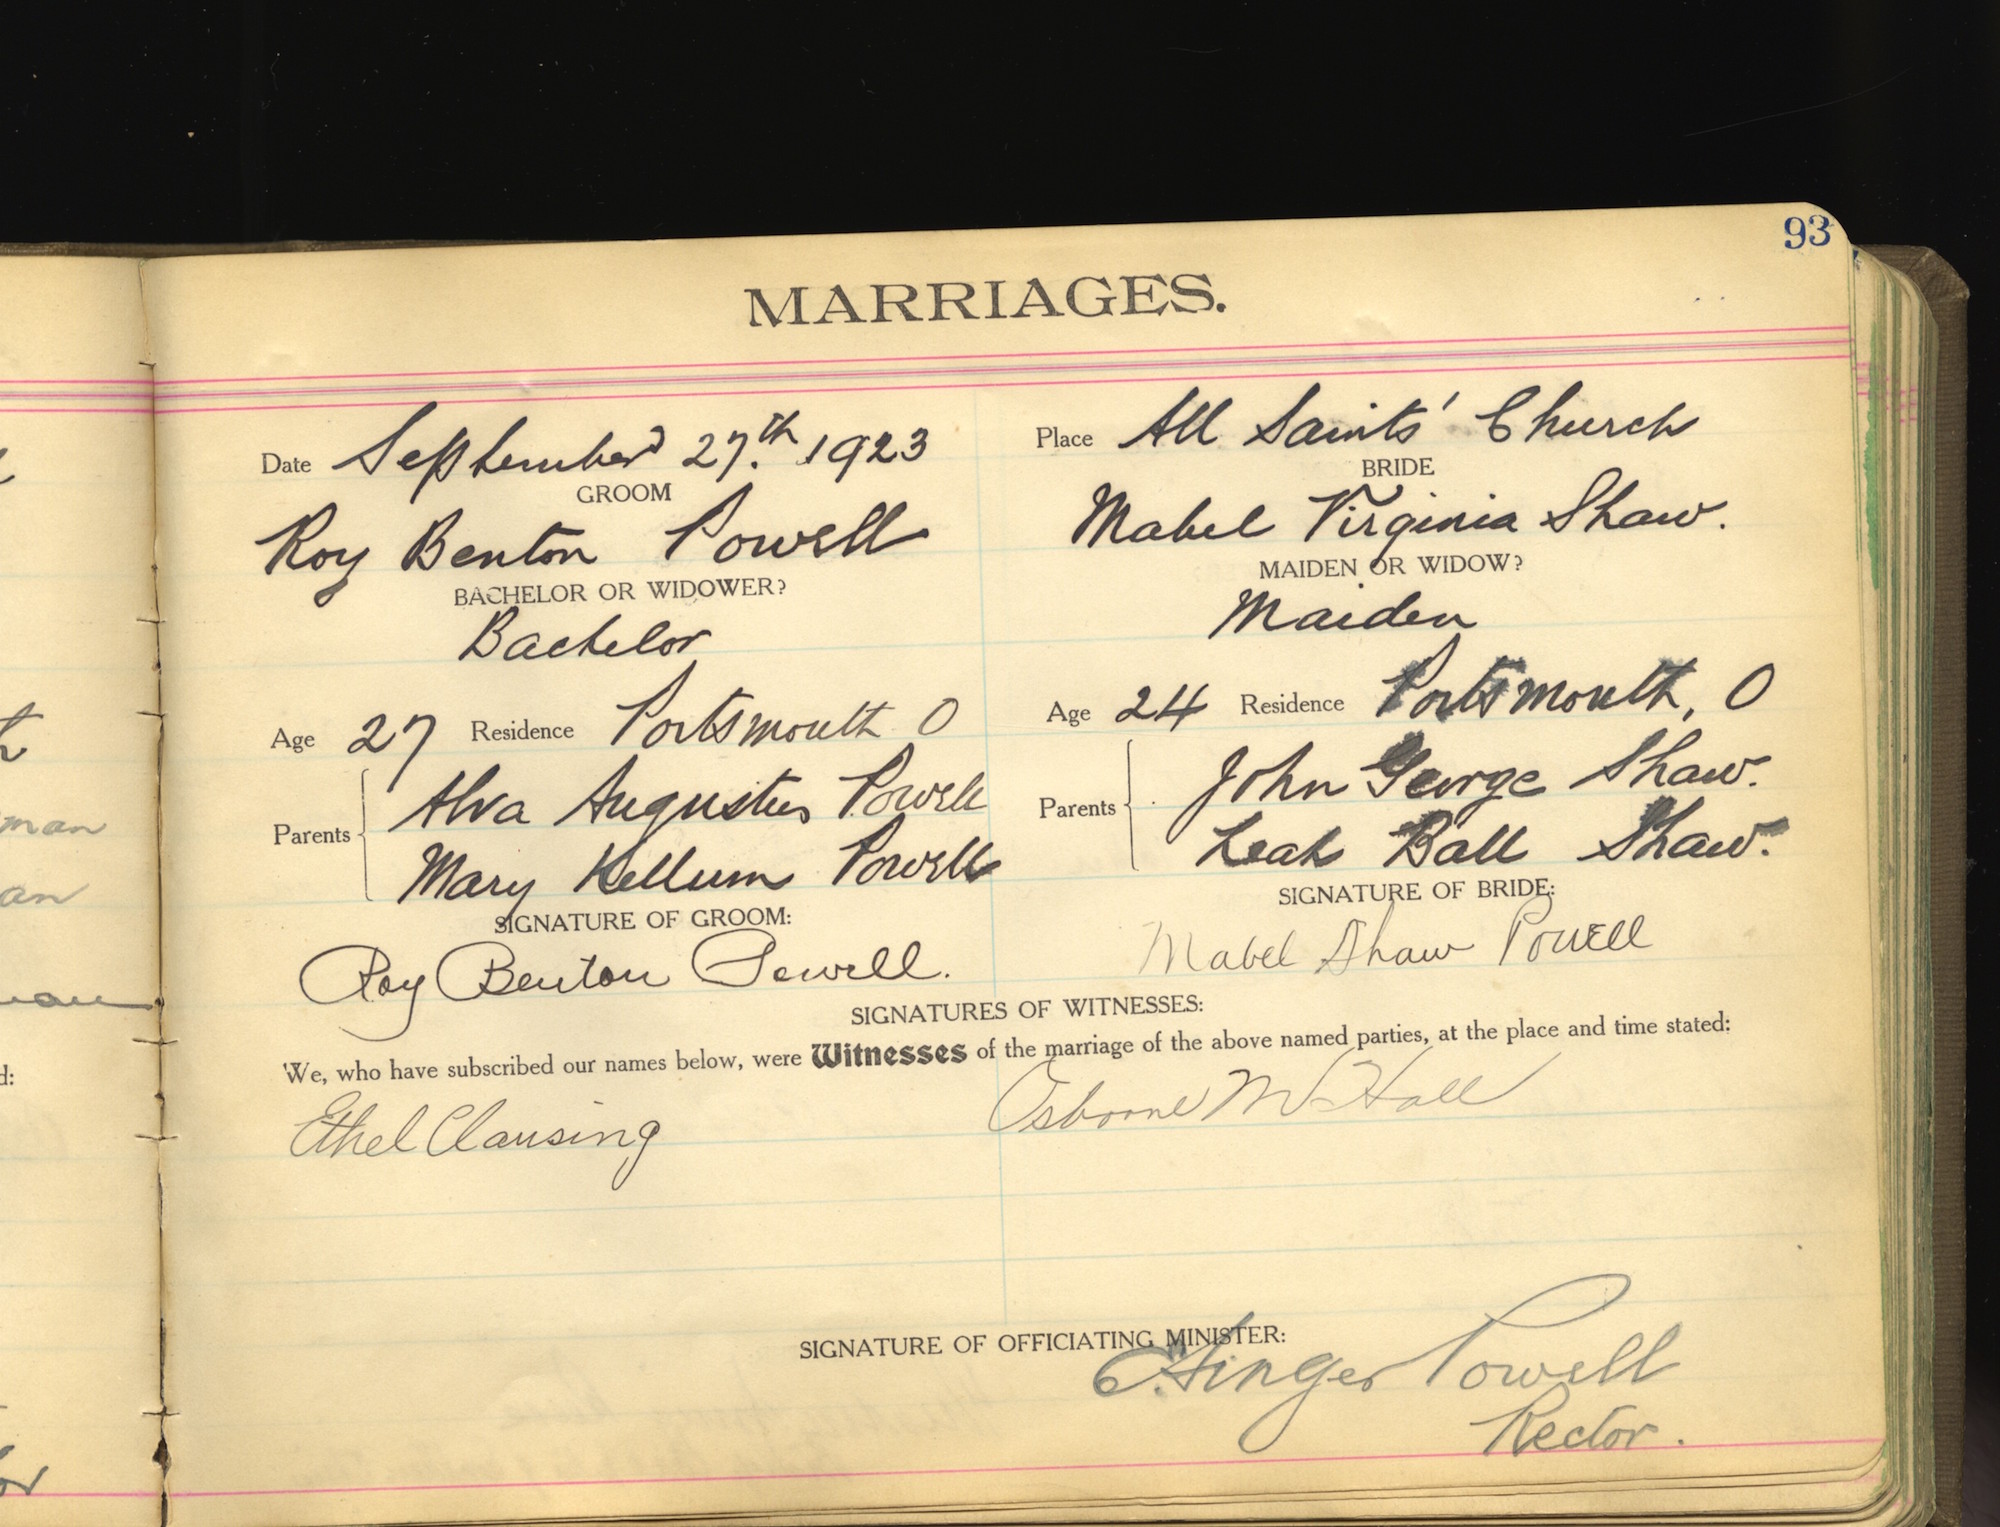 93
MARRIAGES.
Date September 27.th 1923
Place All Saints' Church
GROOM
BRIDE
Roy Benton Powell
Mabel Virginia Shaw.
BACHELOR OR WIDOWER?
MAIDEN OR WIDOW?
Bachelor
Maiden
Age 27 Residence Portsmouth O
Age 24 Residence Portsmouth, O
Parents
Alva Augustus Powell
Mary Kellum Powell
Parents
John George Shaw.
Leah Ball Shaw.
SIGNATURE OF GROOM:
SIGNATURE OF BRIDE:
Roy Benton Powell.
Mabel Shaw Powell
SIGNATURES OF WITNESSES:
We, who have subscribed our names below, were Witnesses of the marriage of the above named parties, at the place and time stated:
Ethel Clausing
Osborne Hall
SIGNATURE OF OFFICIATING MINISTER:
Powell
Rector.
man
an
d: